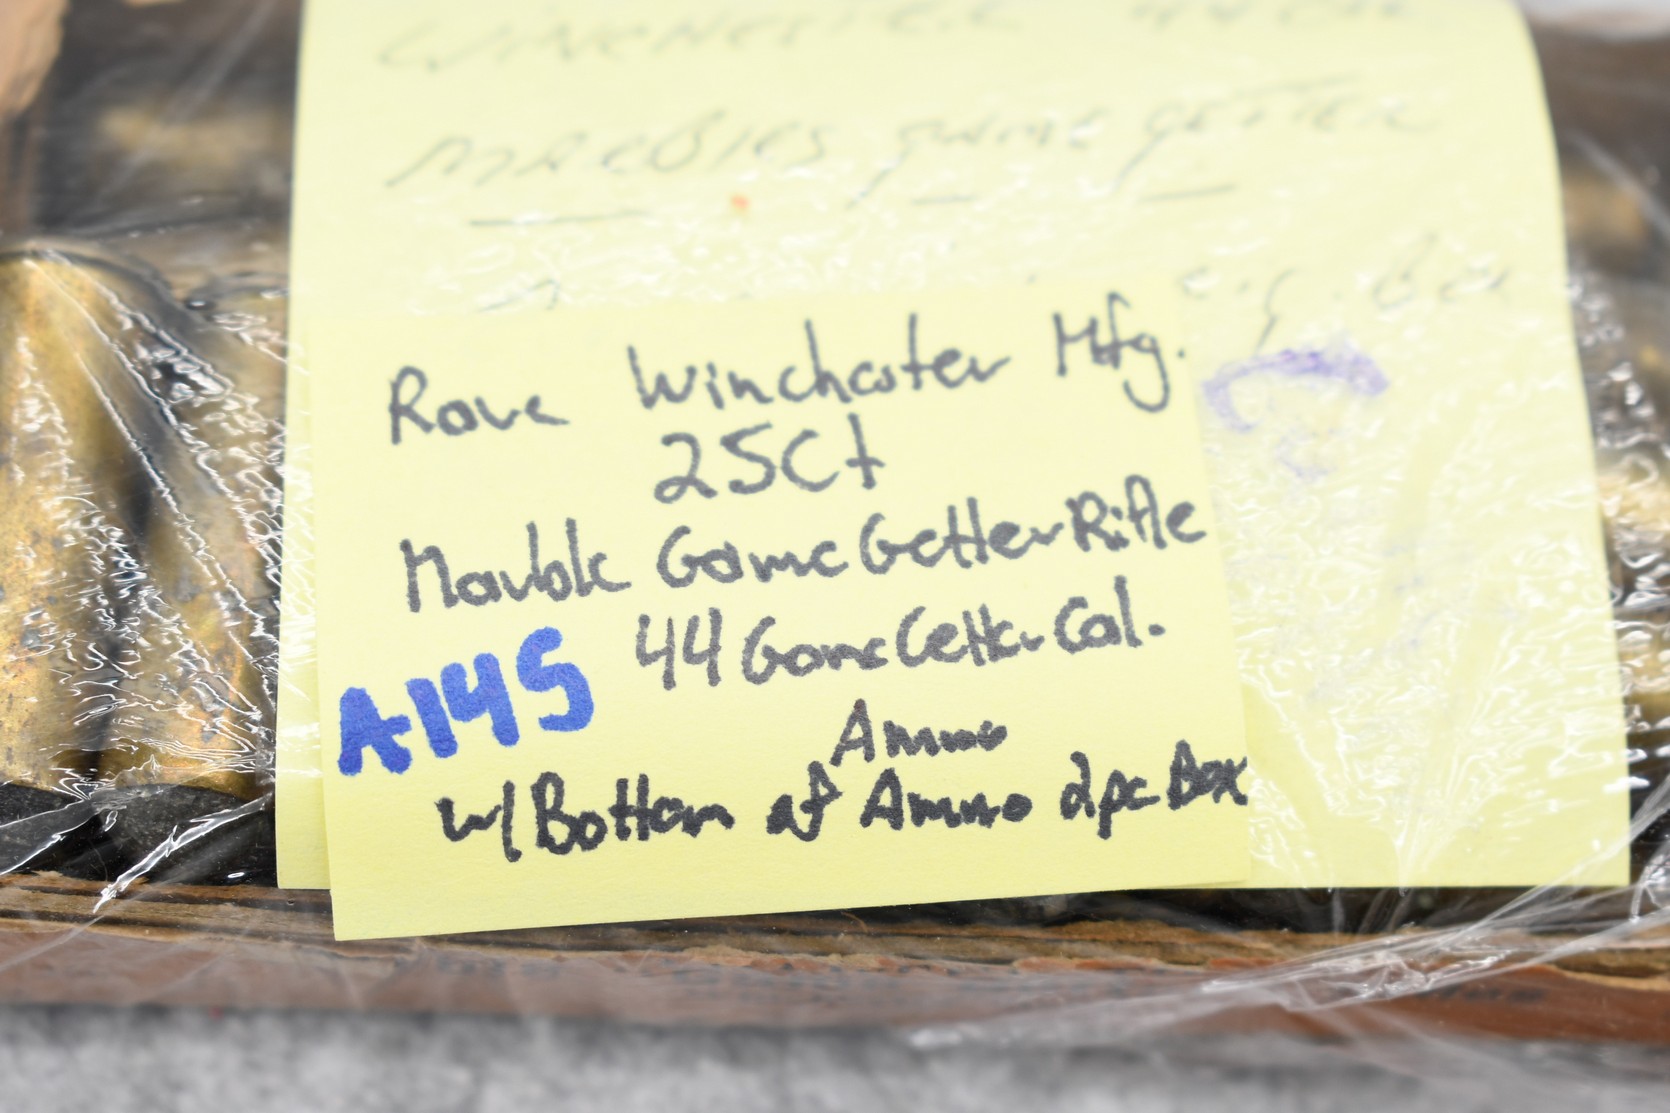 WINCHESTER
MARBLES GAME GETTER
Rare Winchester Mfg.
25Ct
Marble Game Getter Rifle
44 Game Getter Cal.
A145
Ammo
w/ Bottom of Ammo 2pc Box